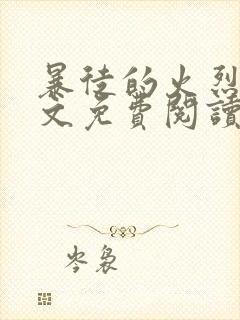 暴徒的火烈
文免費閱讀
岑裊